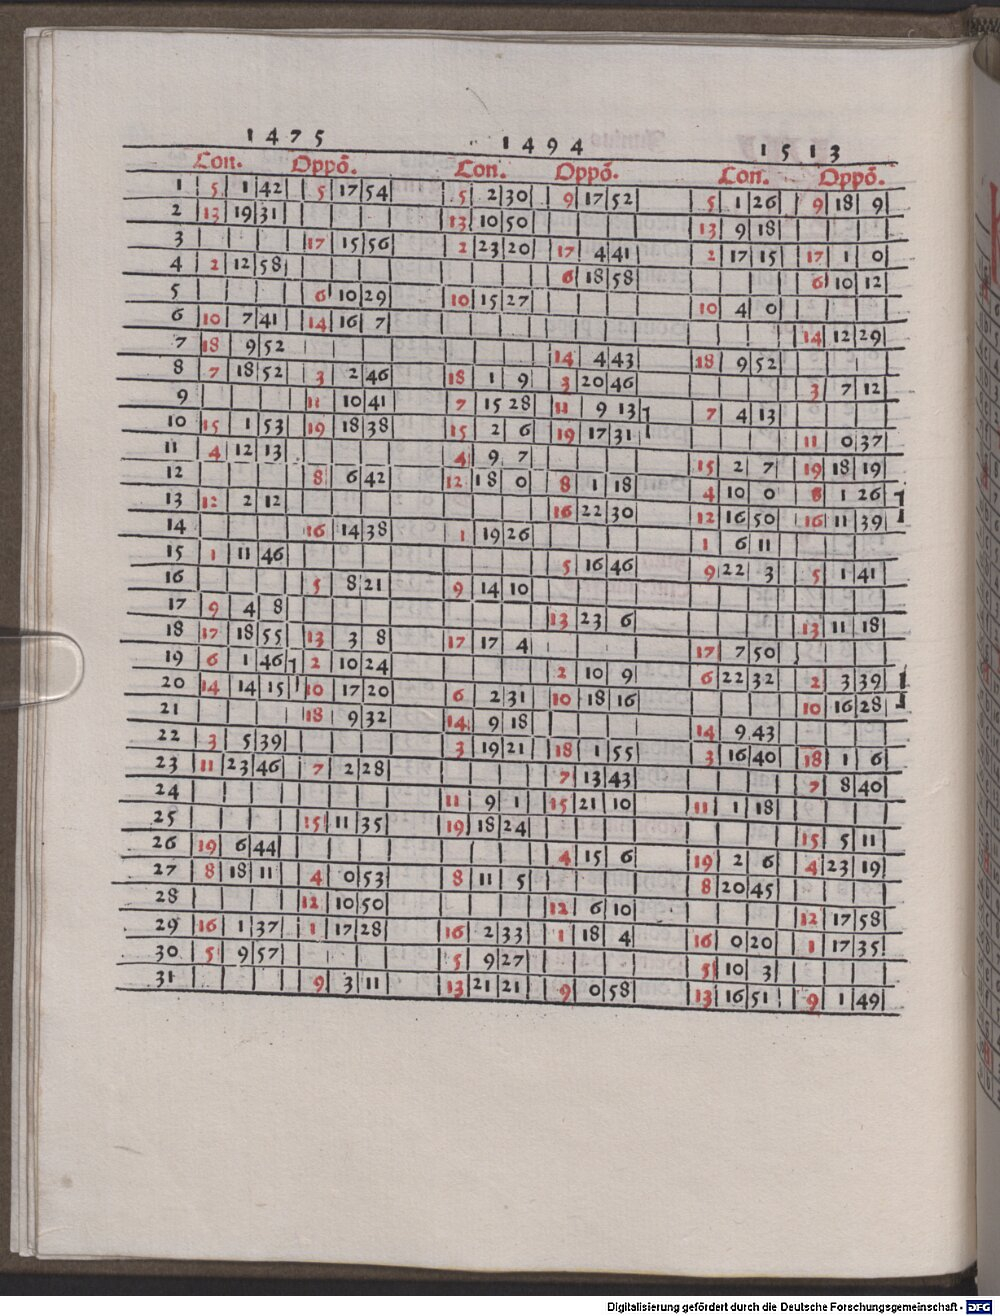 1475 1494 1513
Con. Oppō. Con. Oppō. Con. Oppō.
1 5 1 42 5 17 54 5 2 30 9 17 52 5 1 26 9 18 9
2 13 19 31 13 10 50 13 9 18
3 17 15 56 2 23 20 17 4 41 2 17 15 17 1 0
4 2 12 58 6 18 58 6 10 12
5 6 10 29 10 15 27 10 4 0
6 10 7 41 14 16 7 14 12 29
7 18 9 52 14 4 43 18 9 52
8 7 18 52 3 2 46 18 1 9 3 20 46 3 7 12
9 11 10 41 7 15 28 11 9 13 7 4 13
10 15 1 53 19 18 38 15 2 6 19 17 31 11 0 37
11 4 12 13 4 9 7 15 2 7 19 18 19
12 8 6 42 12 18 0 8 1 18 4 10 0 8 1 26
13 12 2 12 16 22 30 12 16 50 16 11 39
14 16 14 38 1 19 26 1 6 11
15 1 11 46 5 16 46 9 22 3 5 1 41
16 5 8 21 9 14 10
17 9 4 8 13 23 6 13 11 18
18 17 18 55 13 3 8 17 17 4 17 7 50
19 6 1 46 2 10 24 2 10 9 6 22 32 2 3 39
20 14 14 15 10 17 20 6 2 31 10 18 16 10 16 28
21 18 9 32 14 9 18 14 9 43
22 3 5 39 3 19 21 18 1 55 3 16 40 18 1 6
23 11 23 46 7 2 28 7 13 43 7 8 40
24 11 9 1 15 21 10 11 1 18
25 15 11 35 19 18 24 15 5 11
26 19 6 44 4 15 6 19 2 6 4 23 19
27 8 18 11 4 0 53 8 11 5 8 20 45
28 12 10 50 12 6 10 12 17 58
29 16 1 37 1 17 28 16 2 33 1 18 4 16 0 20 1 17 35
30 5 9 57 5 9 27 5 10 3
31 9 3 11 13 21 21 9 0 58 13 16 51 9 1 49
Digitalisierung gefördert durch die Deutsche Forschungsgemeinschaft - DFG